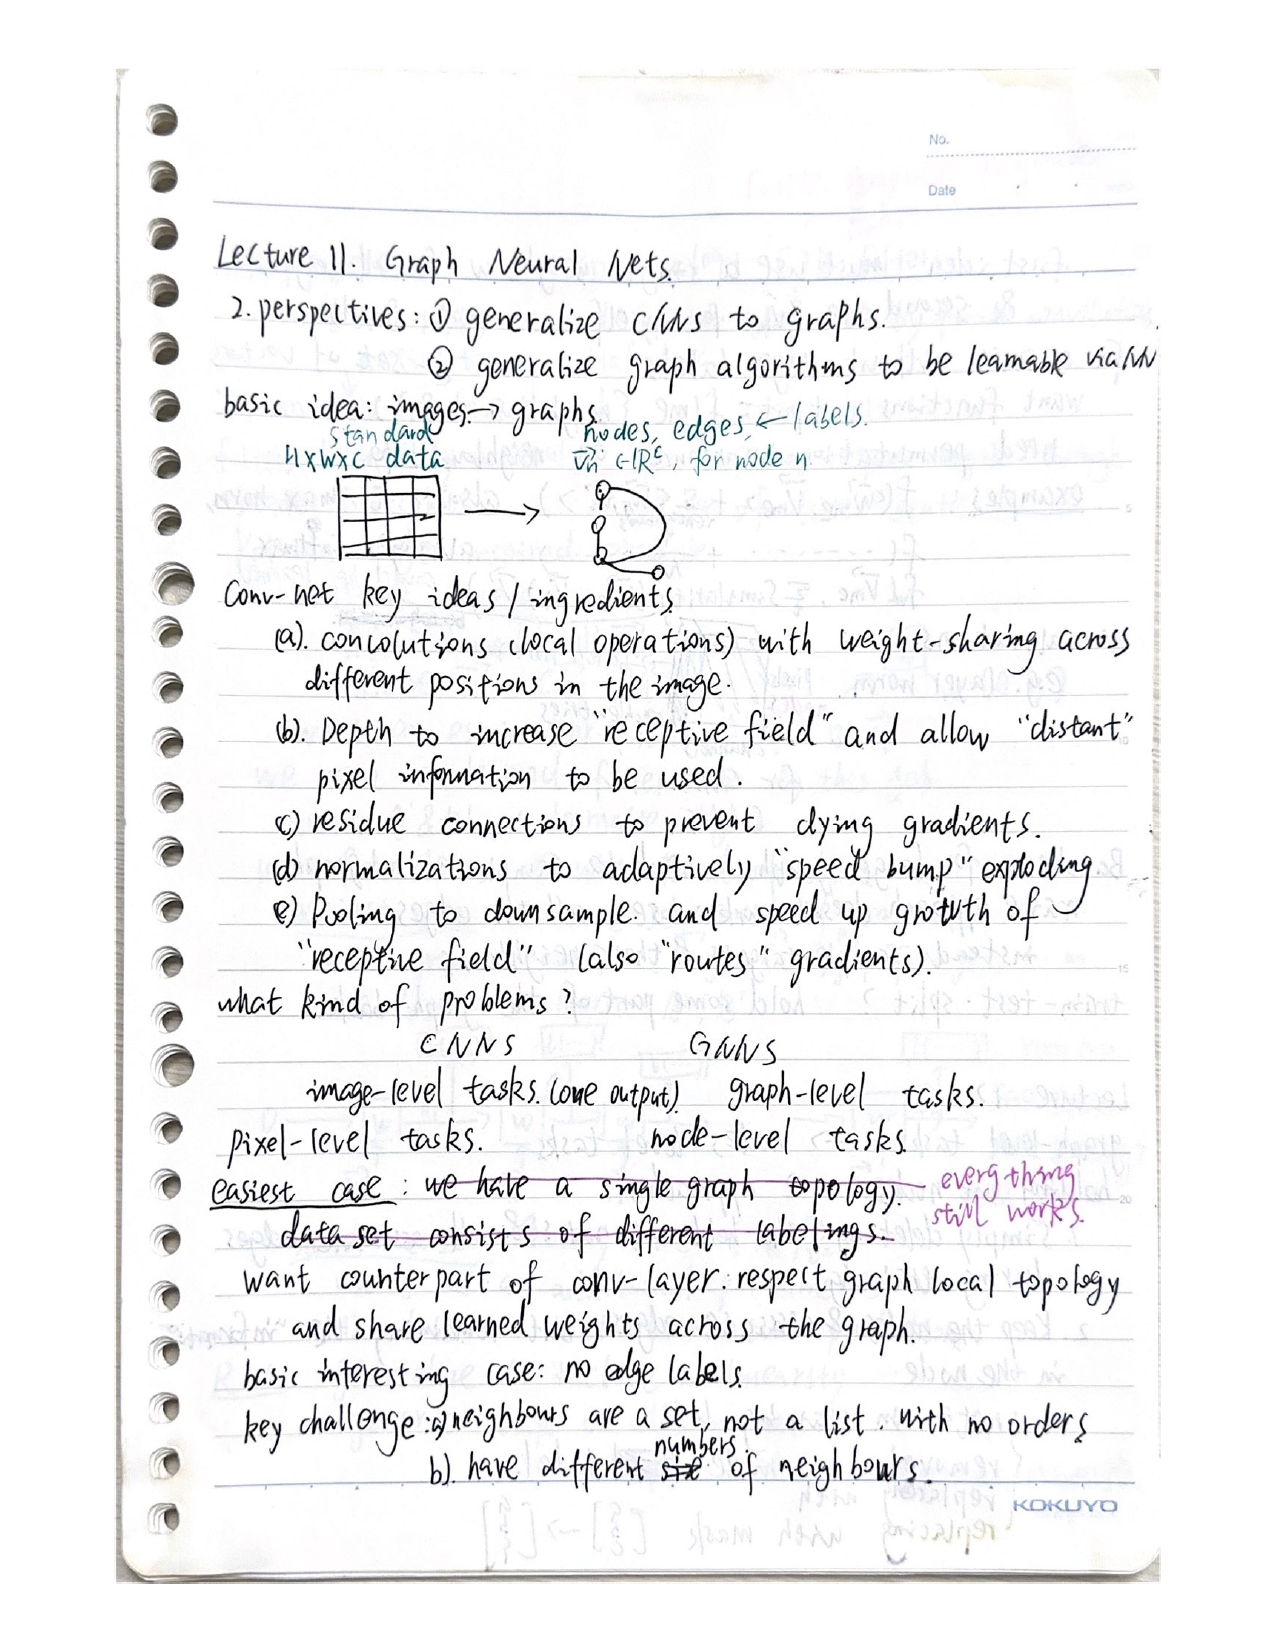 No.
Date
Lecture 11. Graph Neural Nets.
2. perspectives: ① generalize CNNs to graphs.
② generalize graph algorithms to be learnable via NN
basic idea: images → graphs.
standard nodes, edges, ← labels.
H×W×C data v⃗n ∈ ℝ^c, for node n
Conv-net key ideas / ingredients
(a). convolutions (local operations) with weight-sharing across
different positions in the image.
(b). Depth to increase "receptive field" and allow "distant"
pixel information to be used.
c) residue connections to prevent dying gradients.
(d) normalizations to adaptively "speed bump" exploding
e) Pooling to downsample. and speed up growth of
"receptive field" (also "routes" gradients).
what kind of problems?
CNNS GNNS
image-level tasks. (one output) graph-level tasks.
pixel-level tasks. node-level tasks.
easiest case: we have a single graph topology. everything
still works.
data set consists of different labelings.
want counterpart of conv-layer: respect graph local topology
and share learned weights across the graph.
basic interesting case: no edge labels.
key challenge: a) neighbours are a set, not a list. with no orders
numbers.
b). have different size of neighbours.
KOKUYO